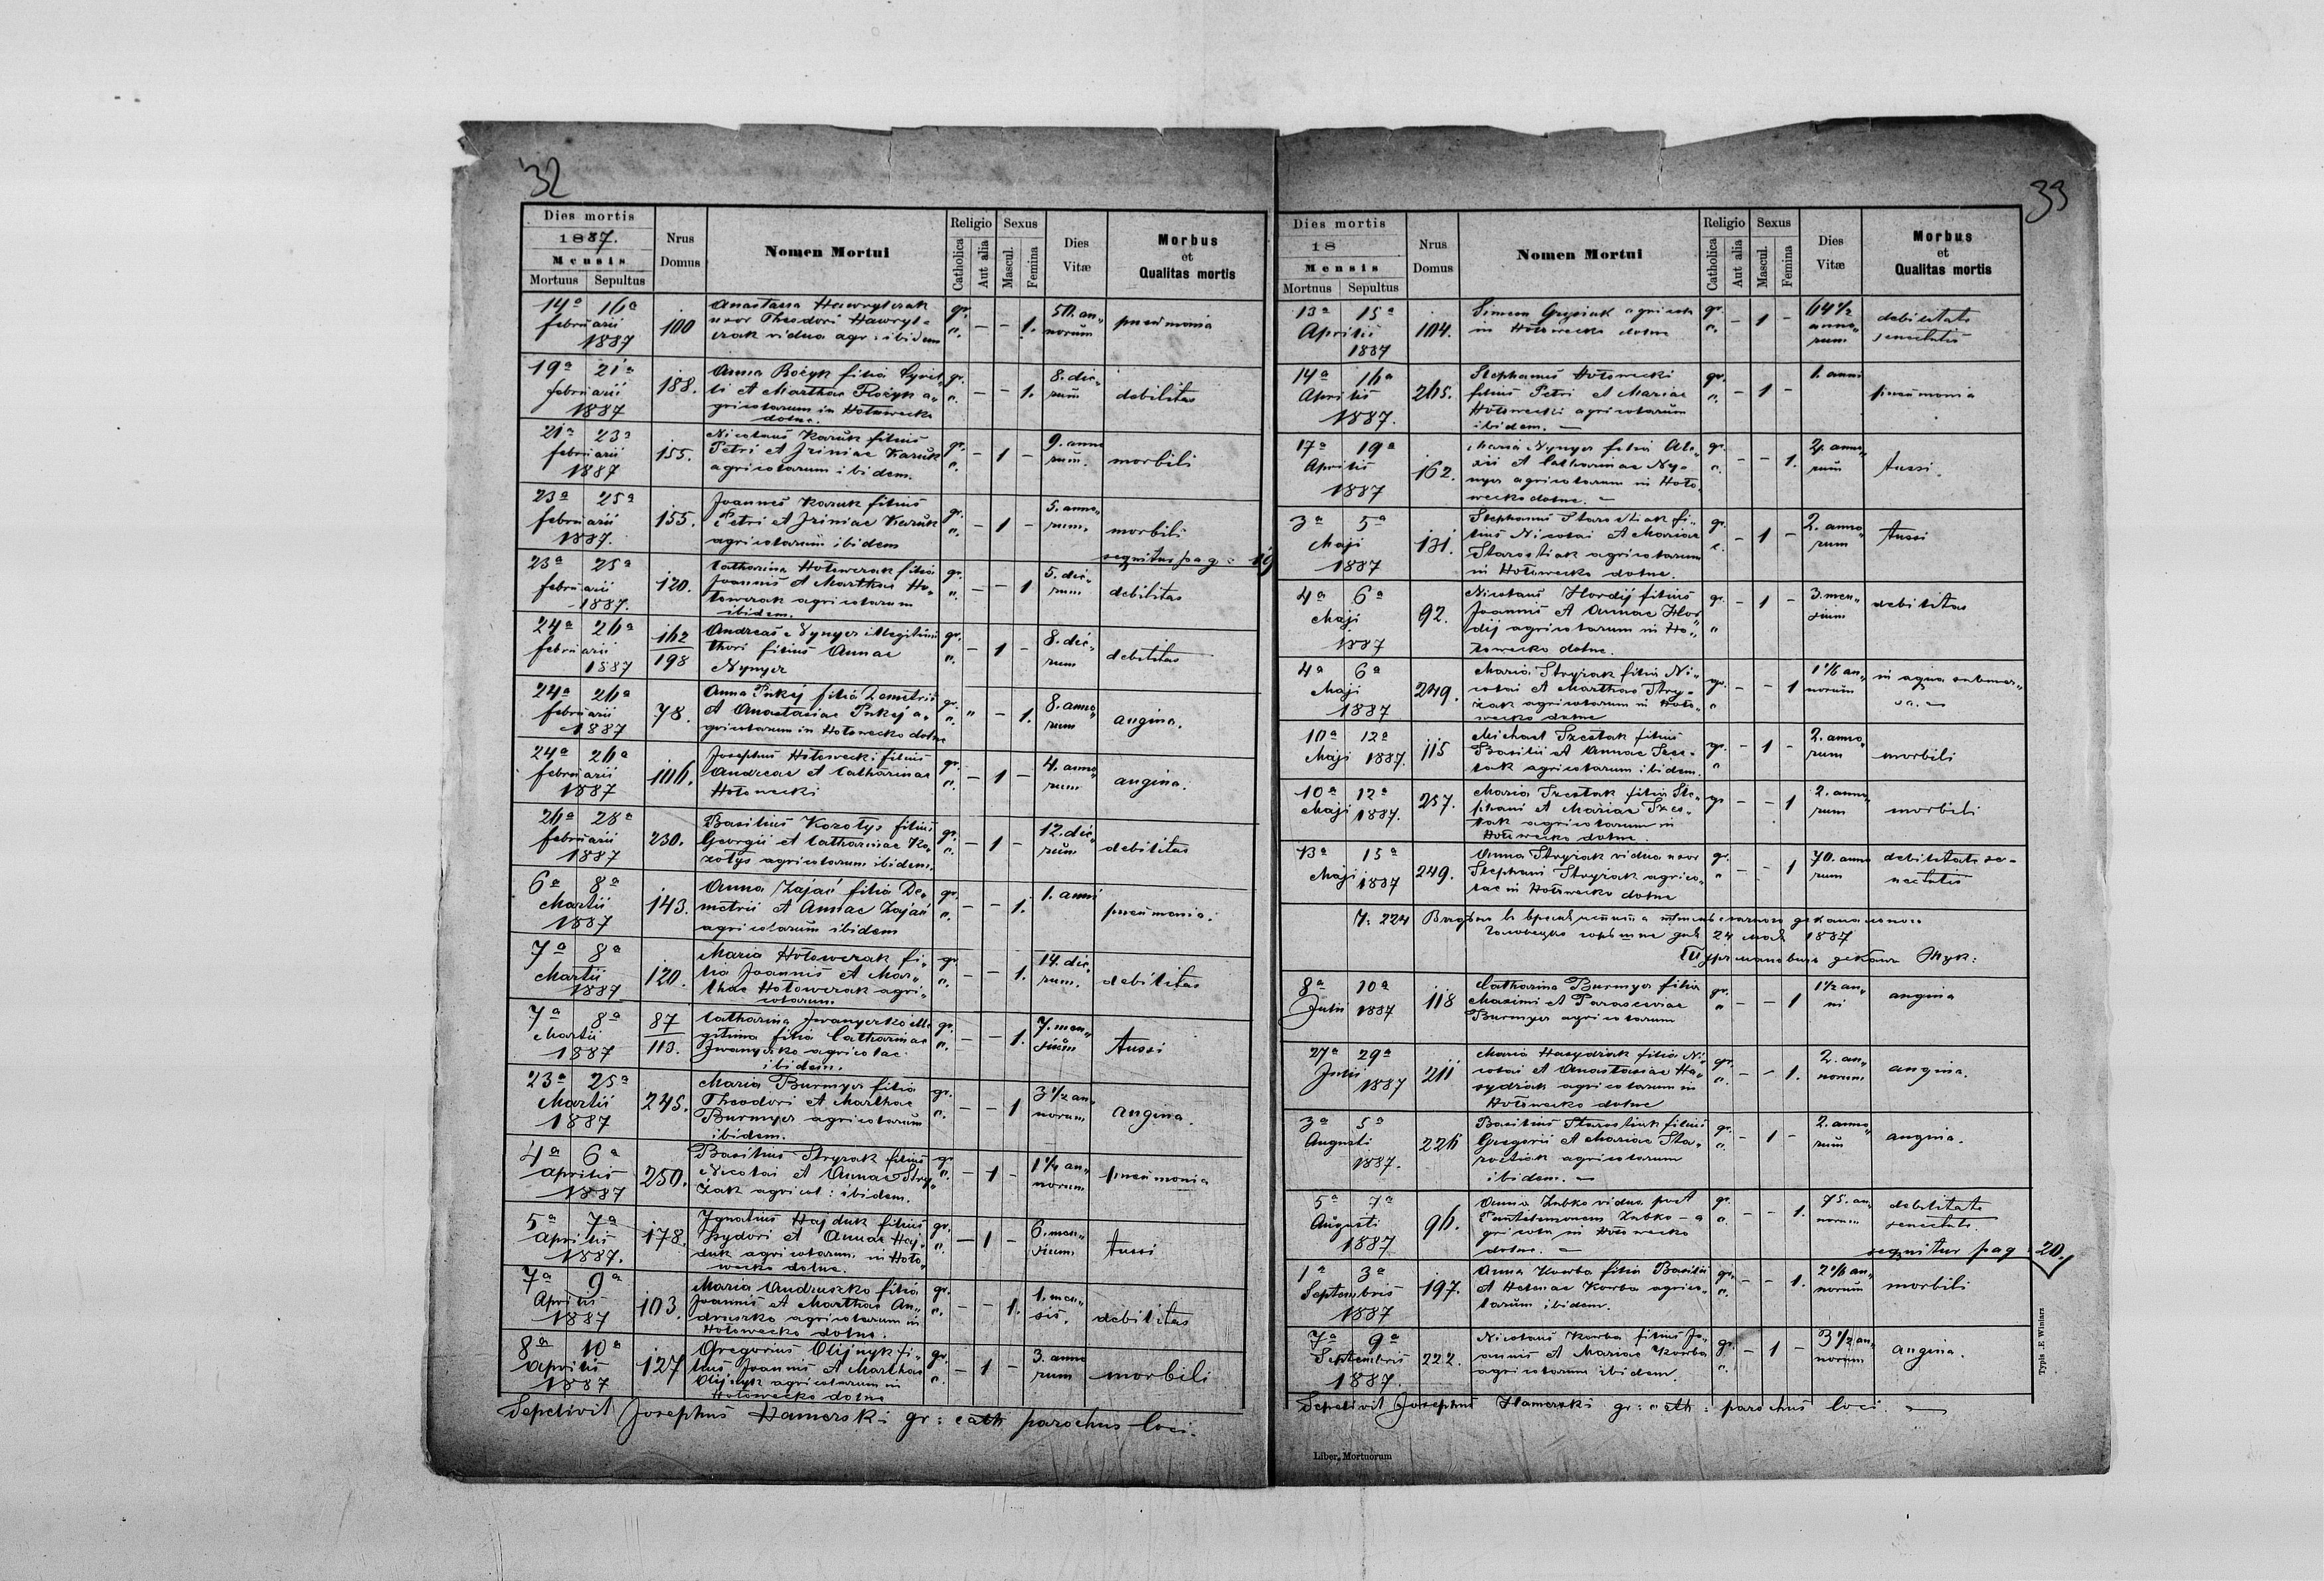 32
Dies mortis
1887.
Mensis
Mortuus Sepultus
Nrus
Domus
Nomen Mortui
Religio
Catholica
Aut alia
Sexus
Mascul.
Femina
Dies
Vitæ
Morbus
et
Qualitas mortis
14ª 16ª
februarii
1887
100
Anastasia Hawrylczak
uxor Theodori Hawryl-
czak vidua agr: ibidem
gr. c. — — 1.
annorum
pneumonia
19ª 21ª
februarii
1887
188.
Anna Rożyk filia Cyril-
li et Marthae Rożyk a-
gricolarum in Hołowecko
dolne.
gr. c. — — 1.
8. dierum
debilitas
21ª 23ª
februarii
1887
155.
Nicolaus Karuk filius
Petri et Iriniae Karuk
agricolarum ibidem.
gr. c. — 1 —
9. annorum.
morbili
23ª 25ª
februarii
1887.
155.
Joannes Karuk filius
Petri et Iriniae Karuk
agricolarum ibidem
gr. c. — 1 —
5. annorum.
morbili
sequitur pag: 19
23ª 25ª
februarii
1887.
120.
Catharina Hołowczak filia
Joannis et Marthae Ho-
łowczak agricolarum
ibidem.
gr. c. — — 1
5. dierum
debilitas
24ª 26ª
februarii
1887
162
198
Andreas Nynyer illegitimi
thori filius Annae
Nynyer
gr. c. — 1 —
8. dierum
debilitas
24ª 26ª
februarii
1887
78.
Anna filia Demetrii
et Anastasiae a-
gricolarum in Hołowecko dolne
gr. c. " — 1.
8. annorum
angina.
24ª 26ª
februarii
1887
106.
Josephus Hołowecki filius
Andreae et Catharinae
Hołowecki
gr. c. — 1 —
4. annorum
angina.
26ª 28ª
februarii
1887
230.
Basilius Kozołys filius
Georgii et Catharinae Ko-
zołys agricolarum ibidem.
gr. c. — 1 —
12. dierum
debilitas
6ª 8ª
Martii
1887
143.
Anna Zając filia De-
metrii et Annae Zając
agricolarum ibidem
gr. c. — — 1.
1. anni
pneumonia.
7ª 8ª
Martii
1887
120.
Maria Hołowczak fi-
lia Joannis et Mar-
thae Hołowczak agri-
colarum
gr. c. — — 1.
14. dierum.
debilitas
7ª 8ª
Martii
1887
87
113.
Catharina Iwanyczko ille-
gitima filia Catharinae
Iwanyczko agricolae
ibidem.
gr. c. — — 1.
7. mensium
tussi
23ª 25ª
Martii
1887
245.
Maria Burmyer filia
Theodori et Marthae
Burmyer agricolarum
ibidem.
gr. c. — — 1
3 1/2 annorum
angina.
4ª 6ª
Aprilis
1887
250.
Basilius Stryżak filius
Nicolai et Annae Stry-
żak agricol: ibidem.
gr. c. — 1 —
1 1/4 annorum
pneumonia
5ª 7ª
Aprilis
1887.
178.
Ignatius Hajduk filius
Isydori et Annae Haj-
duk agricolarum in Hoło-
wecko dolne.
gr. c. — 1 —
6. mensium
tussi
7ª 9ª
Aprilis
1887
103.
Maria Andruszko filia
Joannis et Marthae An-
druszko agricolarum in
Hołowecko dolne.
gr. c. — — 1.
1. mensis.
debilitas
8ª 10ª
Aprilis
1887
127
Gregorius Olijnyk fi-
lius Joannis et Marthae
Olijnyk agricolarum in
Hołowecko dolne
gr. c. — 1 —
3. annorum
morbili
Sepelivit Josephus Hamerski gr: cath parochus loci.
33
Dies mortis
18
Mensis
Mortuus Sepultus
Nrus
Domus
Nomen Mortui
Religio
Catholica
Aut alia
Sexus
Mascul.
Femina
Dies
Vitæ
Morbus
et
Qualitas mortis
13ª 15ª
Aprilis
1887
104.
Simeon Grysiak agricola
in Hołowecko dolne
gr. c. — 1 —
64 1/2
annorum
debilitate
senectutis
14ª 16ª
Aprilis
1887.
265.
Stephanus Hołowecki
filius Petri et Mariae
Hołowecki agricolarum
ibidem.
gr. c. — 1 —
1. anni
pneumonia
17ª 19ª
Aprilis
1887
162.
Maria Nynyer filia Ale-
xii et Catharinae Ny-
nyer agricolarum in Hoło-
wecko dolne.
gr. c. — — 1.
annorum
tussi.
3ª 5ª
Maji
1887
131.
Stephanus Starostiak fi-
lius Nicolai et Mariae
Starostiak agricolarum
in Hołowecko dolne.
gr. c. — 1 —
2. annorum
tussi
4ª 6ª
Maji
1887
92.
Nicolaus Hordij filius
Joannis et Annae Hor-
dij agricolarum in Ho-
łowecko dolne.
gr. " — 1 —
3. mensium
debilitas
4ª 6ª
Maji
1887
249.
Maria Stryżak filia Ni-
colai et Marthae Stry-
żak agricolarum in Hoło-
wecko dolne
gr. " — — 1
1 1/6 annorum
in aqua submer-
sa.
10ª 12ª
Maji 1887.
115
Michael Szestak filius
Basilii et Annae Szes-
tak agricolarum ibidem.
gr. " — 1 —
2. annorum
morbili
10ª 12ª
Maji 1887.
257.
Maria Szestak filia Ste-
phani et Mariae Szes-
tak agricolarum in
Hołowecko dolne.
gr — — 1
2. annorum
morbili
13ª 15ª
Maji 1887
249.
Anna Stryżak vidua uxor
Stephani Stryżak agrico-
lae in Hołowecko dolne
gr. " — — 1
70. annorum
debilitate se-
nectutis
Ч. 224
24 мая 1887
8ª 10ª
Julii 1887
118
Catharina Burmyer filia
Maximi et Parasceviae
Burmyer agricolarum
gr. " — — 1
1 1/2 anni
angina
27ª 29ª
Julii
1887
211
Maria Hasydżak filia Ni-
colai et Anastasiae Ha-
sydżak agricolarum in
Hołowecko dolne
gr. c. — — 1.
2. annorum
angina.
3ª 5ª
Augusti
1887.
226
Basilius Starostiak filius
Gregorii et Mariae Sta-
rostiak agricolarum
ibidem.
gr. c. — 1 —
2. annorum
angina.
5ª 7ª
Augusti
1887
96.
Anna Zubko vidua post
Pantelemonem Zubko a-
gricola in Hołowecko
dolne.
gr. c. — — 1.
75. annorum
debilitate
senectutis.
sequitur pag 20.
1ª 3ª
Septembris
1887
197.
Anna Korba filia Basilii
et Helenae Korba agrico-
larum ibidem.
gr. c. — — 1.
2 1/6 annorum
morbili
7ª 9ª
Septembris
1887.
222.
Nicolaus Korba filius Jo-
annis et Mariae Korba
agricolarum ibidem.
gr. c. — 1 —
3 1/2 annorum
angina.
Sepelivit Josephus Hamerski gr: cath: parochus loci.
Liber Mortuorum
Typis E Winiarz